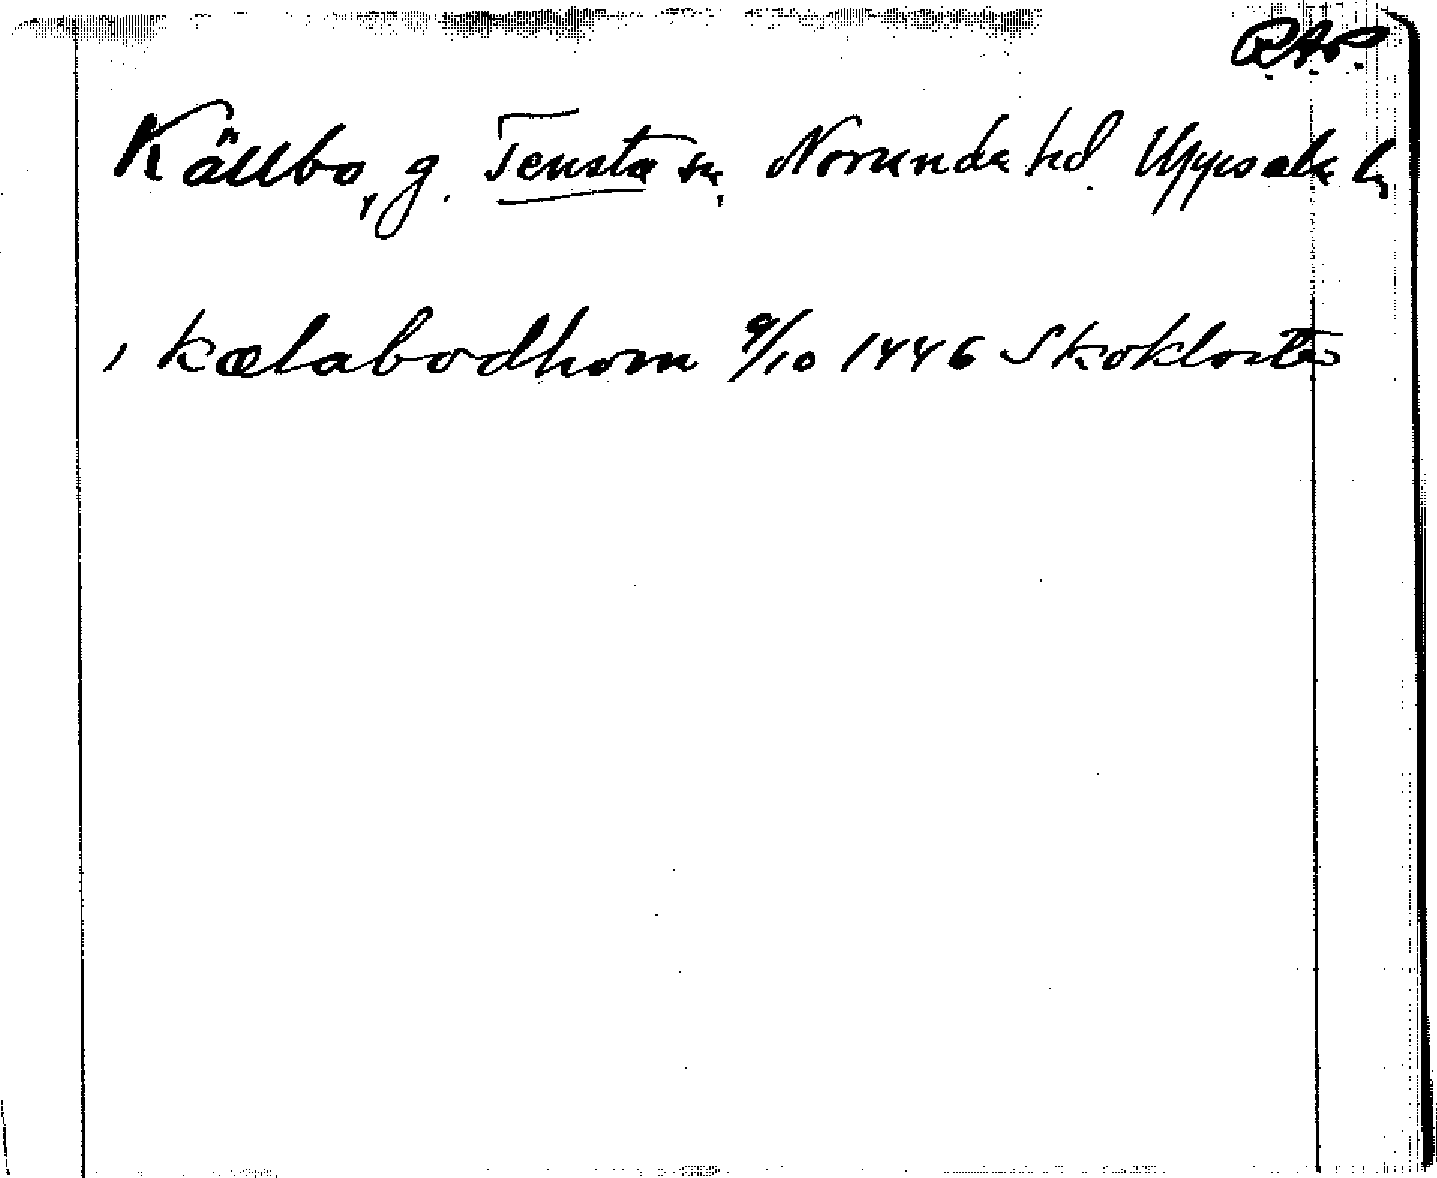 R.A.P.
Källbo, g. Tensta sn, Norunda hd. Uppsala l.
i kælabodhom 9/10 1446 Skokloster